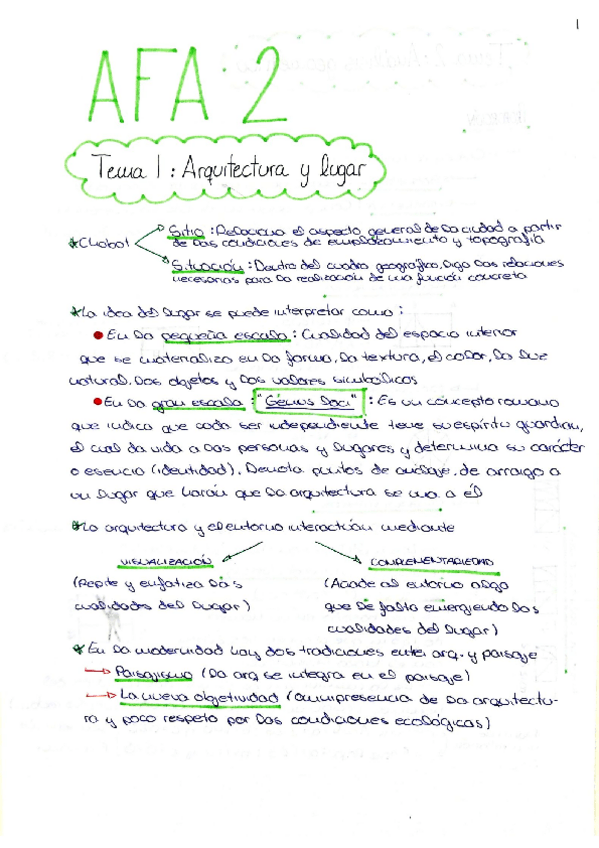 1
AFA 2
Tema 1: Arquitectura y lugar
*Chabot
Sitio: Relaciona el aspecto general de la ciudad a partir
de las condiciones de emplazamiento y topografía
Situación: Dentro del cuadro geográfico, diga las relaciones
necesarias para la realización de una función concreta
*La idea del lugar se puede interpretar como:
● En la pequeña escala: Cualidad del espacio interior
que se materializa en la forma, la textura, el color, la luz
natural, los objetos y los valores simbólicos
● En la gran escala: "Génius Loci": Es un concepto romano
que indica que cada ser independiente tiene su espíritu guardian,
el cual da vida a las personas y lugares y determina su carácter
o esencia (identidad). Denota puntos de anclaje, de arraigo a
un lugar que harán que la arquitectura se una a él
*La arquitectura y el entorno interactúan mediante
VISUALIZACIÓN
(Repite y enfatiza las
cualidades del lugar)
COMPLEMENTARIEDAD
(Añade al entorno algo
que le falta emergiendo las
cualidades del lugar)
*En la modernidad hay dos tradiciones entre arq. y paisaje
→ Paisajismo (La arq se integra en el paisaje)
→ La nueva objetividad (omnipresencia de la arquitectu-
ra y poco respeto por las condiciones ecológicas)